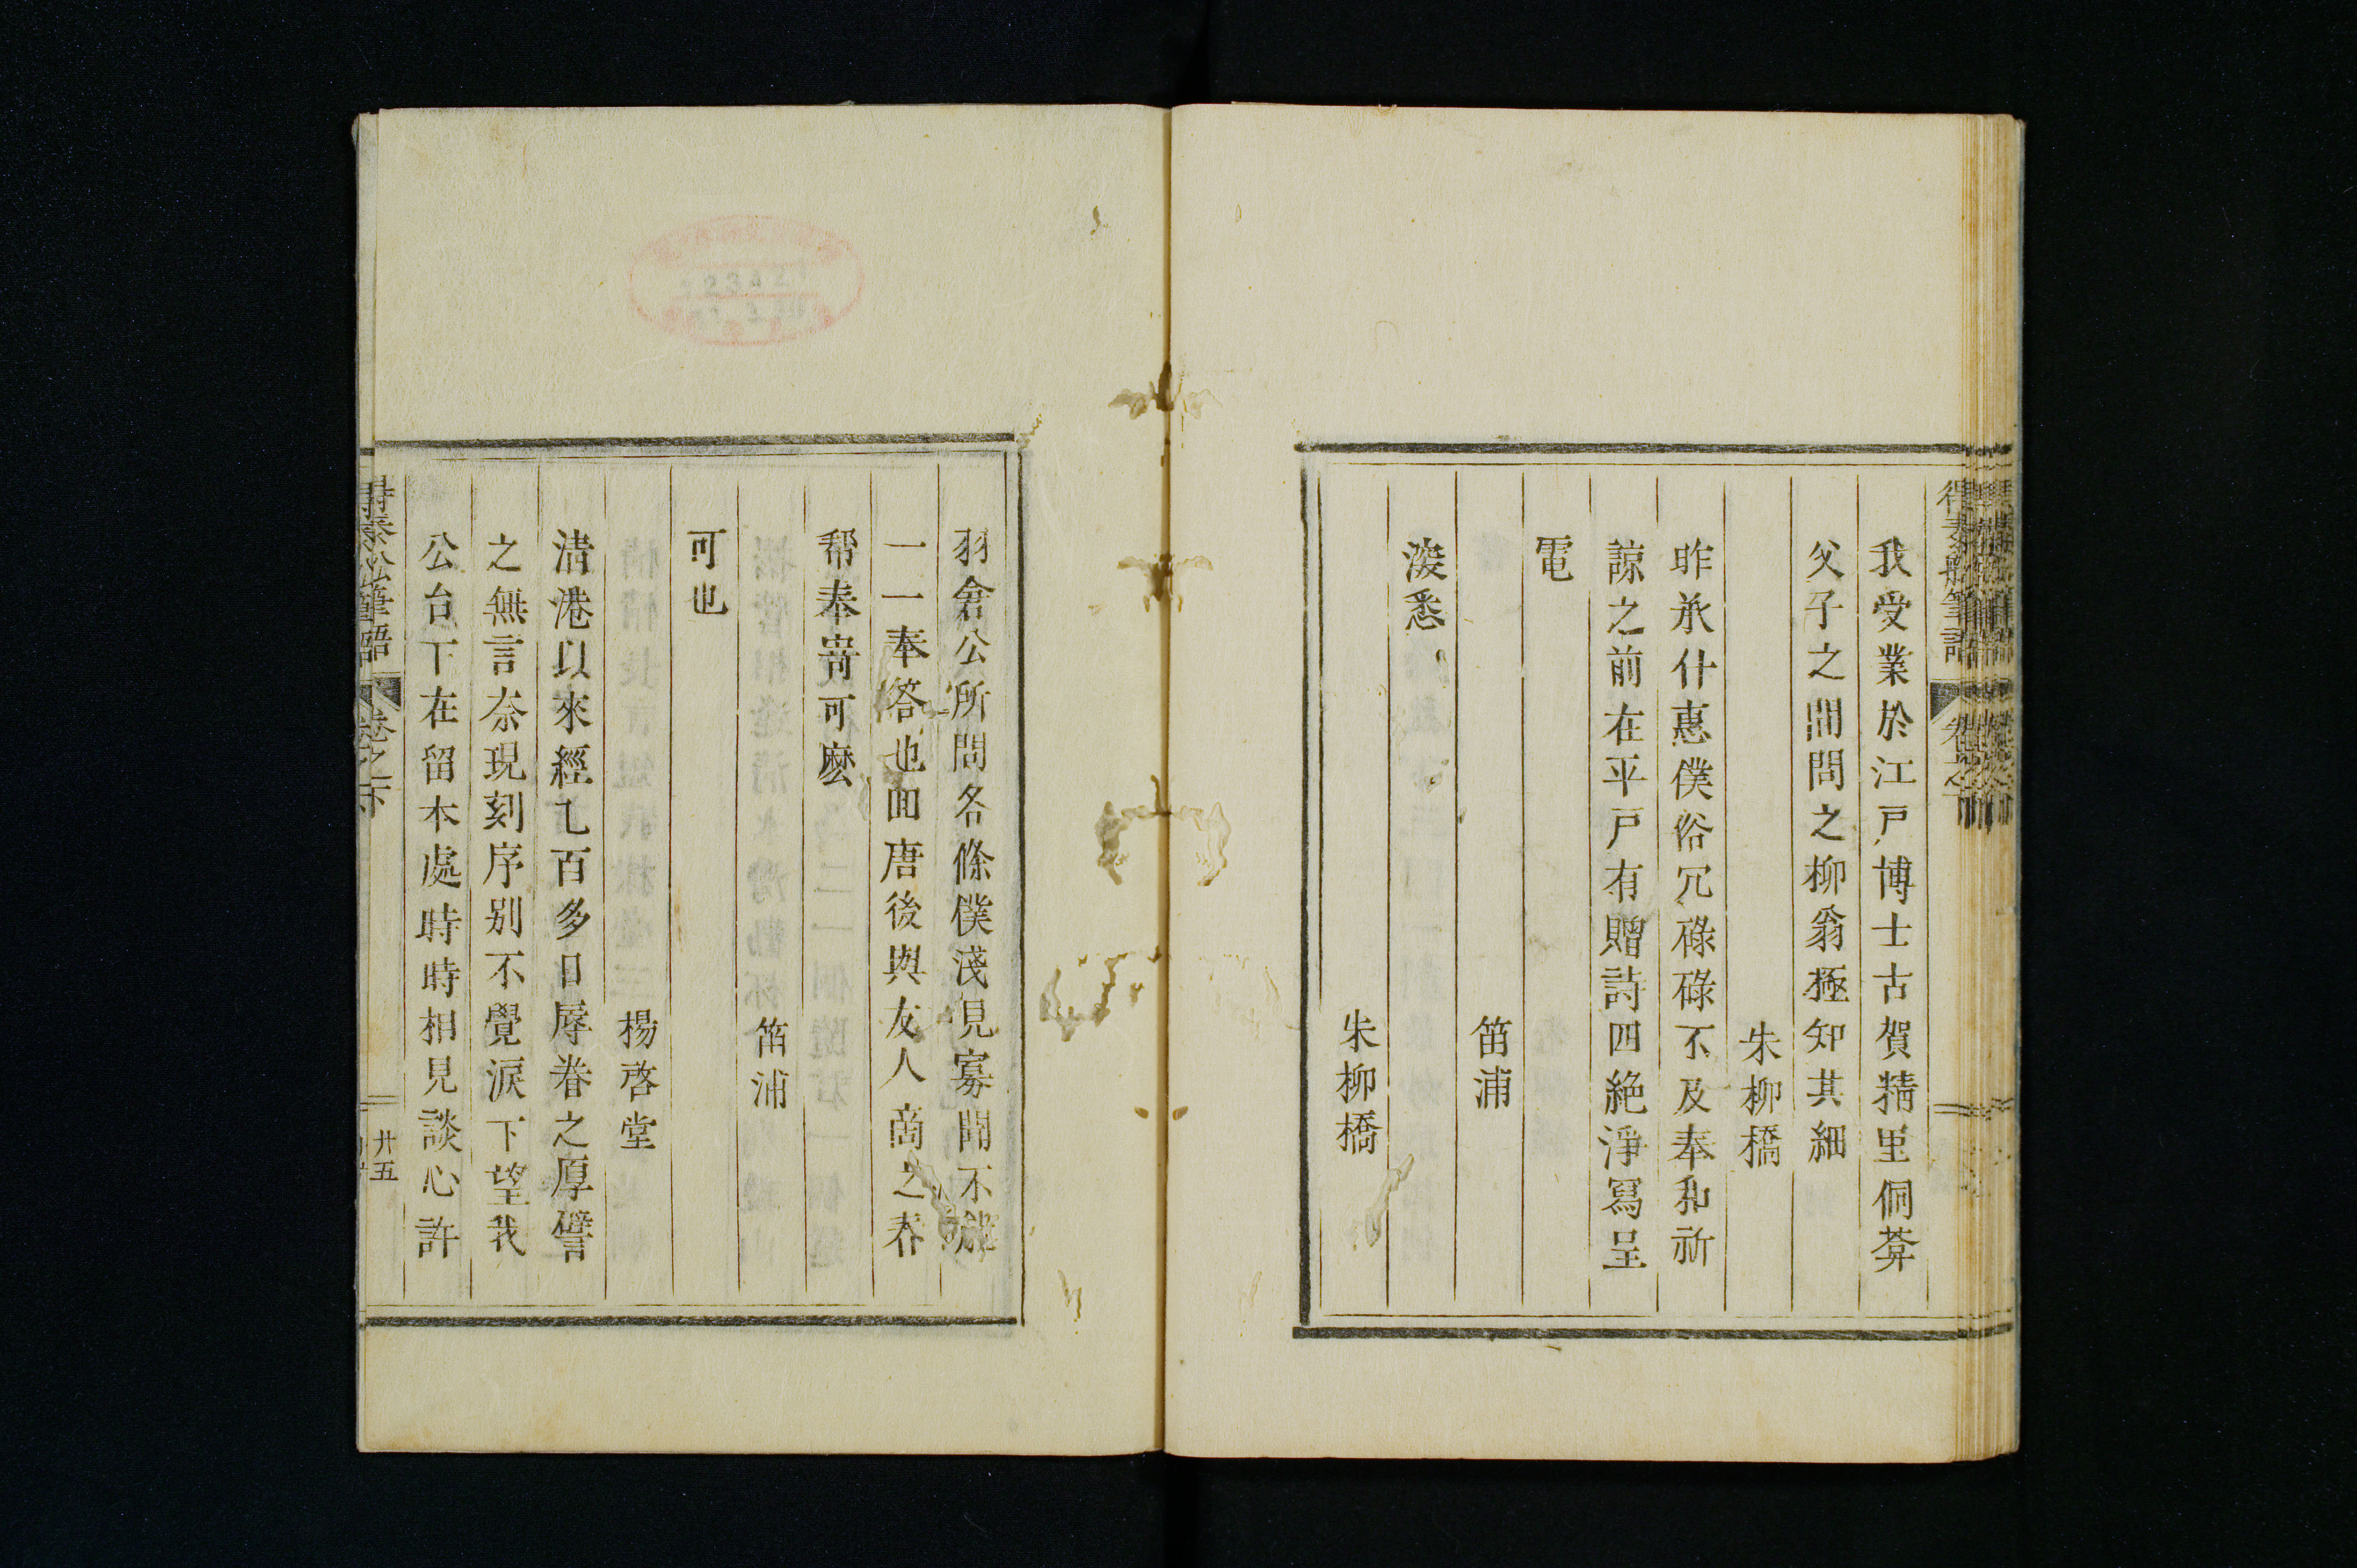 得泰船筆語 卷之下
我受業於江戸博士古賀精里侗葊
父子之間問之柳翁極知其細
朱柳橋
昨承什惠僕俗冗碌碌不及奉和祈
諒之前在平戸有贈詩四絶淨寫呈
電
笛浦
淩悉
朱柳橋
羽倉公所問各條僕淺見寡聞不能
一一奉答也囬唐後與友人啇之春
幇奉寄可麽
笛浦
可也
楊啓堂
清港以來經乜百多日辱眷之厚譬
之無言奈現刻序别不覺淚下望我
公台下在留木處時時相見談心許
得泰船筆語 卷之下
廿五